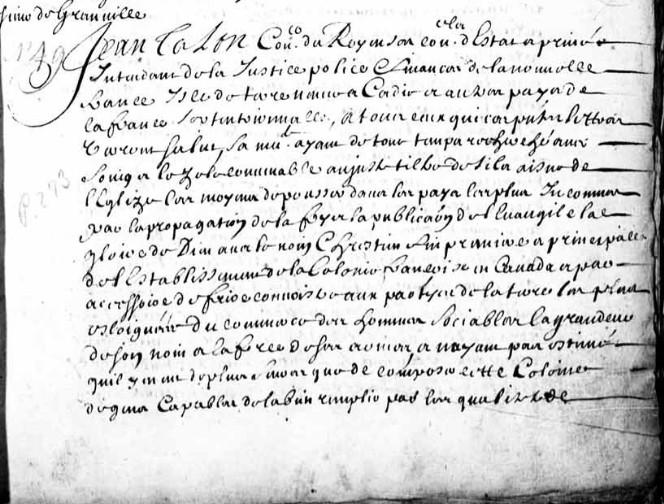 de Granville
Jean Talon Con.er du Roy en son con. d'Estat et privé
Intendant de la Justice police et finances de la nouvelle
france Isle de terre neufve acadie et autres pays de
la france septentrionalle, a tous ceux qui ces pntes lettres
verront salut, sa ma.té ayant de tout temps recherché avec
soing et le zele convenable au juste tiltre de fils aisné de
l'Eglize les moyens de pousser dans les pays les plus Inconnus
par la propagation de la foy et la publicaon de l'Evangile la
gloire de Dieu avec le nom Chrestien fin premiere et principalle
de l'Establissement de la Colonie françoise en Canada et par
accessoire de faire connoistre aux parties de la terre les plus
esloignées du commerce des hommes sociables la grandeur
de son nom et la force de ses armes et n'ayant pas estimé
qu'il y en eut de plus seures que de composer cette Colonie
de gens Capables de la bien remplir par les qualitez de